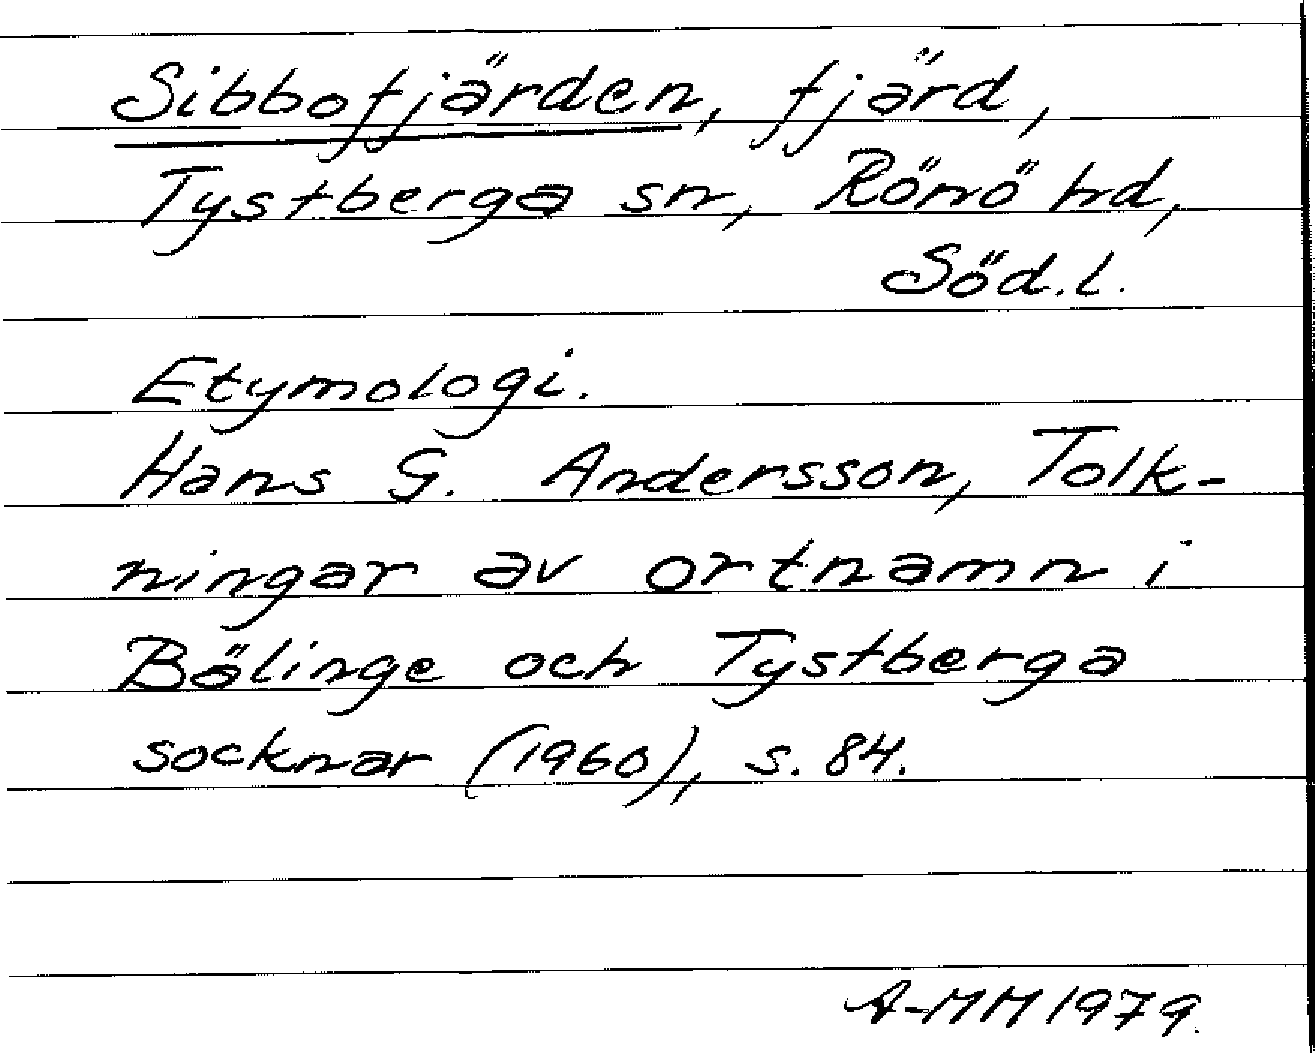 Sibbofjärden, fjärd,
Tystberga sn, Rönö hd,
Söd.l.
Etymologi.
Hans G. Andersson, Tolk-
ningar av ortnamn i
Bälinge och Tystberga
socknar (1960), s. 84.
A-MM 1979.